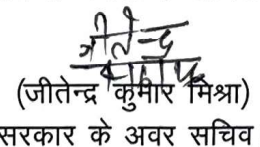 जीतेन्द्र
(जीतेन्द्र कुमार मिश्रा)
सरकार के अवर सचिव